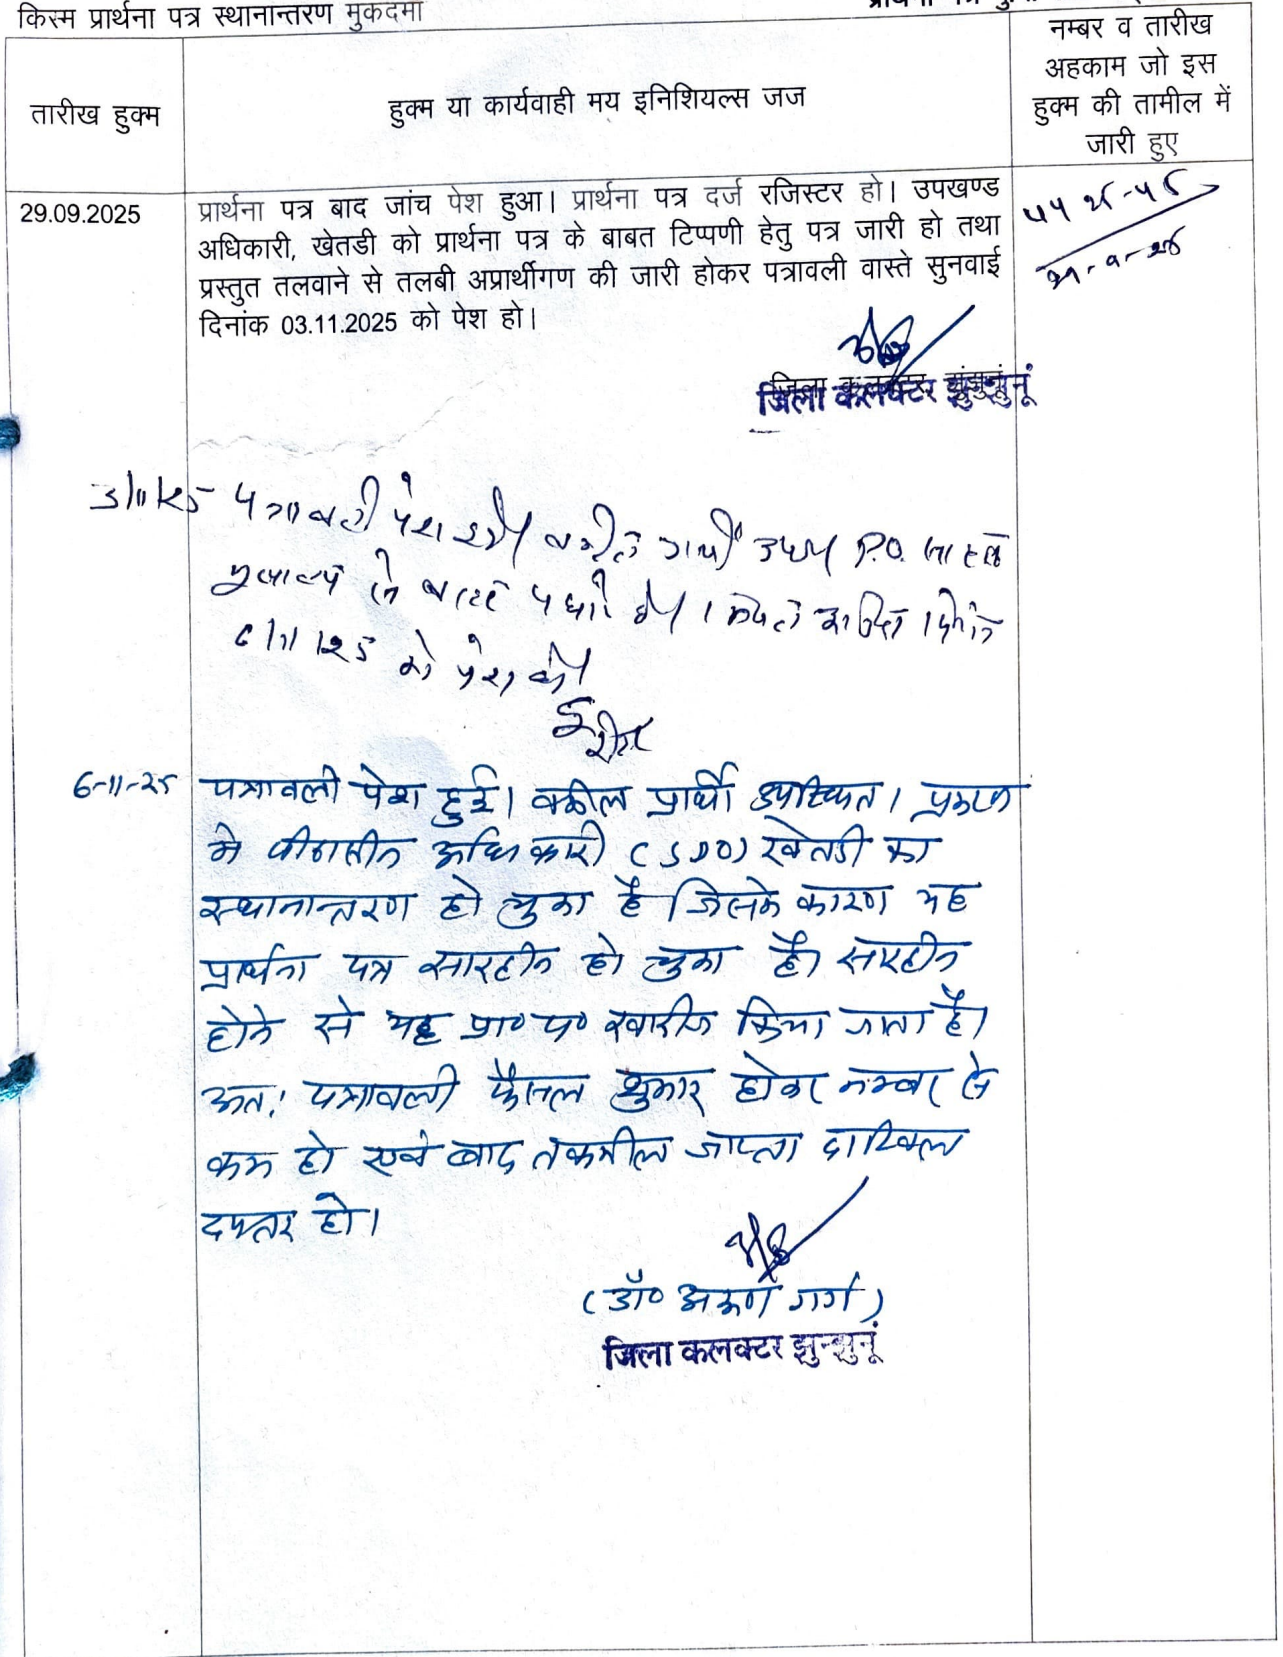 किस्म प्रार्थना पत्र स्थानान्तरण मुकदमा
तारीख हुक्म
हुक्म या कार्यवाही मय इनिशियल्स जज
नम्बर व तारीख
अहकाम जो इस
हुक्म की तामील में
जारी हुए
29.09.2025
प्रार्थना पत्र बाद जांच पेश हुआ। प्रार्थना पत्र दर्ज रजिस्टर हो। उपखण्ड
अधिकारी, खेतडी को प्रार्थना पत्र के बाबत टिप्पणी हेतु पत्र जारी हो तथा
प्रस्तुत तलवाने से तलबी अप्रार्थीगण की जारी होकर पत्रावली वास्ते सुनवाई
दिनांक 03.11.2025 को पेश हो।
जिला कलक्टर झुन्झुनूं
3/11/25 पत्रावली पेश हुई वकील प्रार्थी उप० P.O.
6/11/25 को पेश हो।
6-11-25 पत्रावली पेश हुई। वकील प्रार्थी उपस्थित। प्रकरण
मे पीठासीन अधिकारी (SDO) खेतडी का
स्थानान्तरण हो चुका है जिसके कारण यह
प्रार्थना पत्र सारहीन हो चुका है। सारहीन
होने से यह प्रा० प० खारीज किया जाता है।
अतः पत्रावली फैसल शुमार होकर नम्बर से
कम हो एवं बाद तकमील जाप्ता दाखिल
दफ्तर हो।
(डॉ० अरूण गर्ग)
जिला कलक्टर झुन्झुनूं